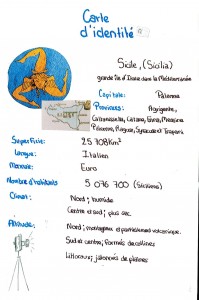 Carte
d'identité
Sicile, (Sicilia)
grande île d'Italie dans la Méditerranée
Capitale: Palerme
Provinces: Agrigente,
Caltanissetta, Catane, Enna, Messine
Palerme, Raguse, Syracuse et Trapani
Superficie: 25 708 Km²
Langue: Italien
Monnaie: Euro
Nombre d'habitants 5 076 700 (Siciliens)
Climat: Nord; humide
Centre et sud; plus sec
Altitude: Nord; montagneux et partiellement volcanique.
Sud et centre; formés de collines
Littoraux; jalonnés de plaines